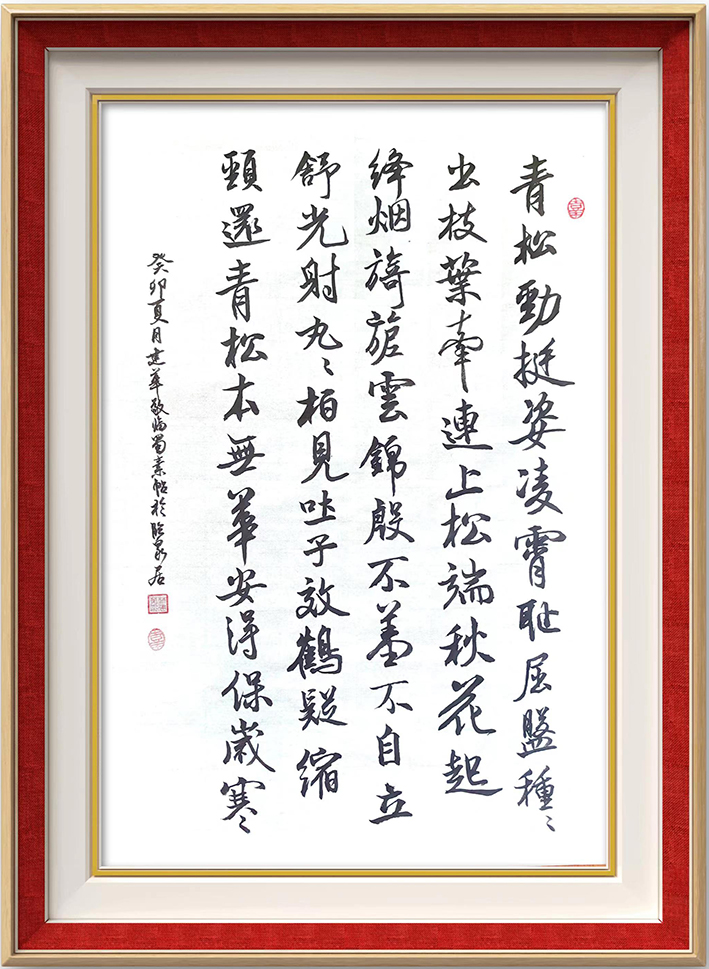 青松勁挺姿凌霄耻屈盤種〻
出枝葉牽連上松端秋花起
絳烟旖旎雲錦殷不羞不自立
舒光射丸〻柏見吐子效鶴疑縮
頸還青松本無華安得保歲寒
癸卯夏月建華敬臨蜀素帖於居